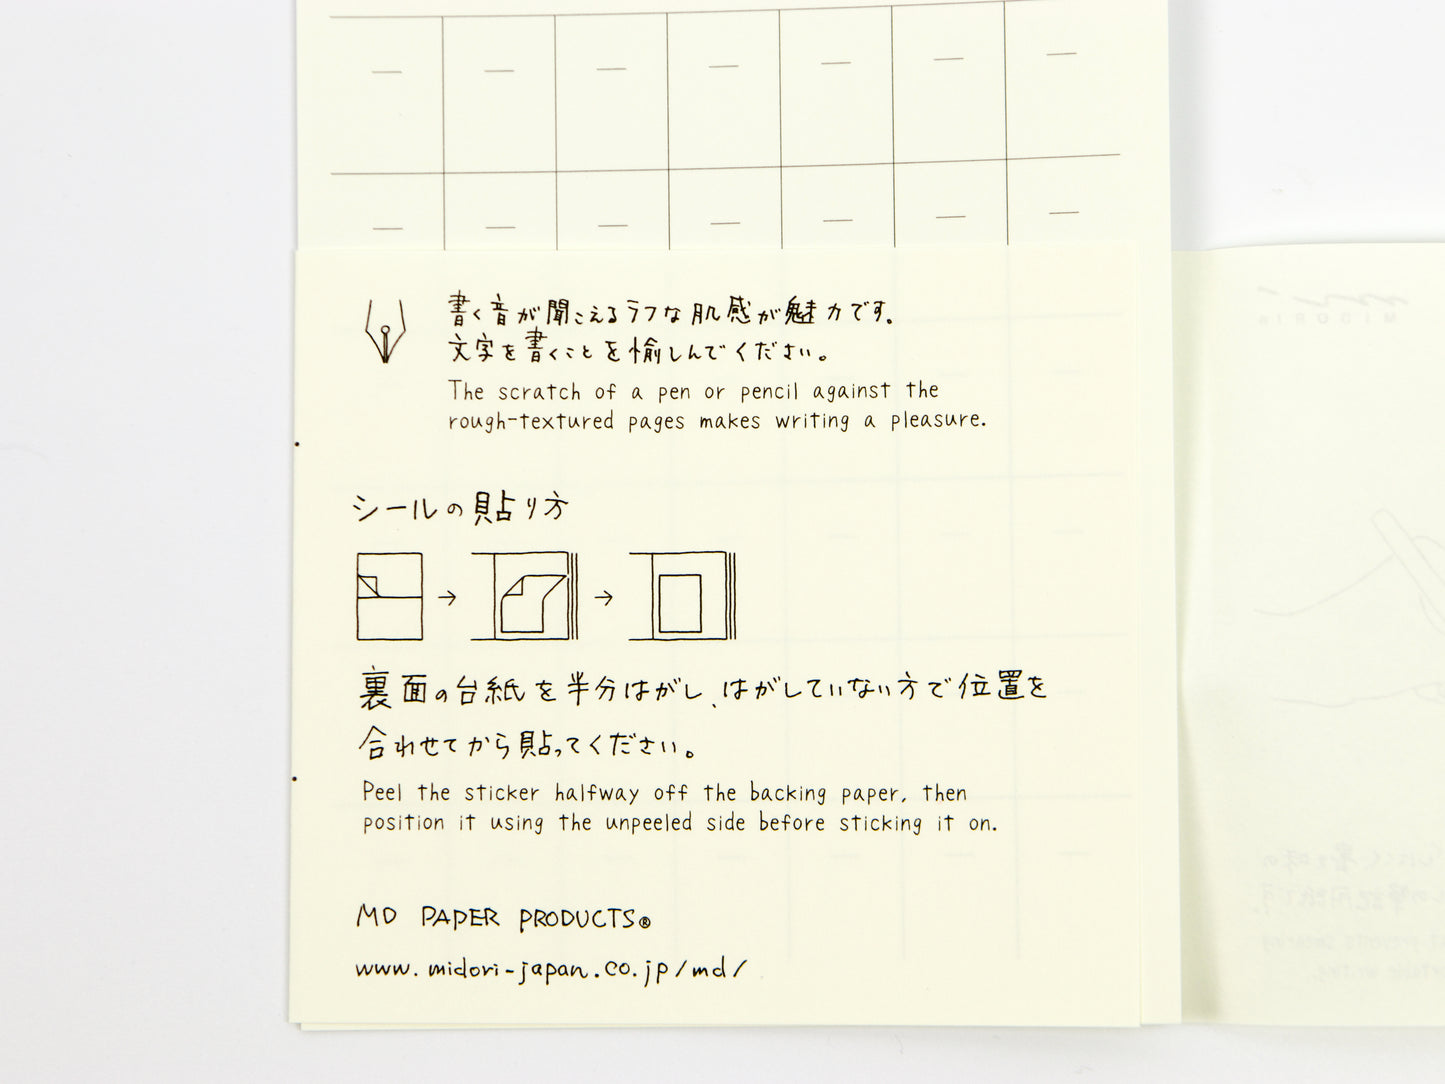 書く音が聞こえるラフな肌感が魅力です。
文字を書くことを愉しんでください。
The scratch of a pen or pencil against the
rough-textured pages makes writing a pleasure.
シールの貼り方
裏面の台紙を半分はがし、はがしていない方で位置を
合わせてから貼ってください。
Peel the sticker halfway off the backing paper, then
position it using the unpeeled side before sticking it on.
MD PAPER PRODUCTS®
www.midori-japan.co.jp/md/